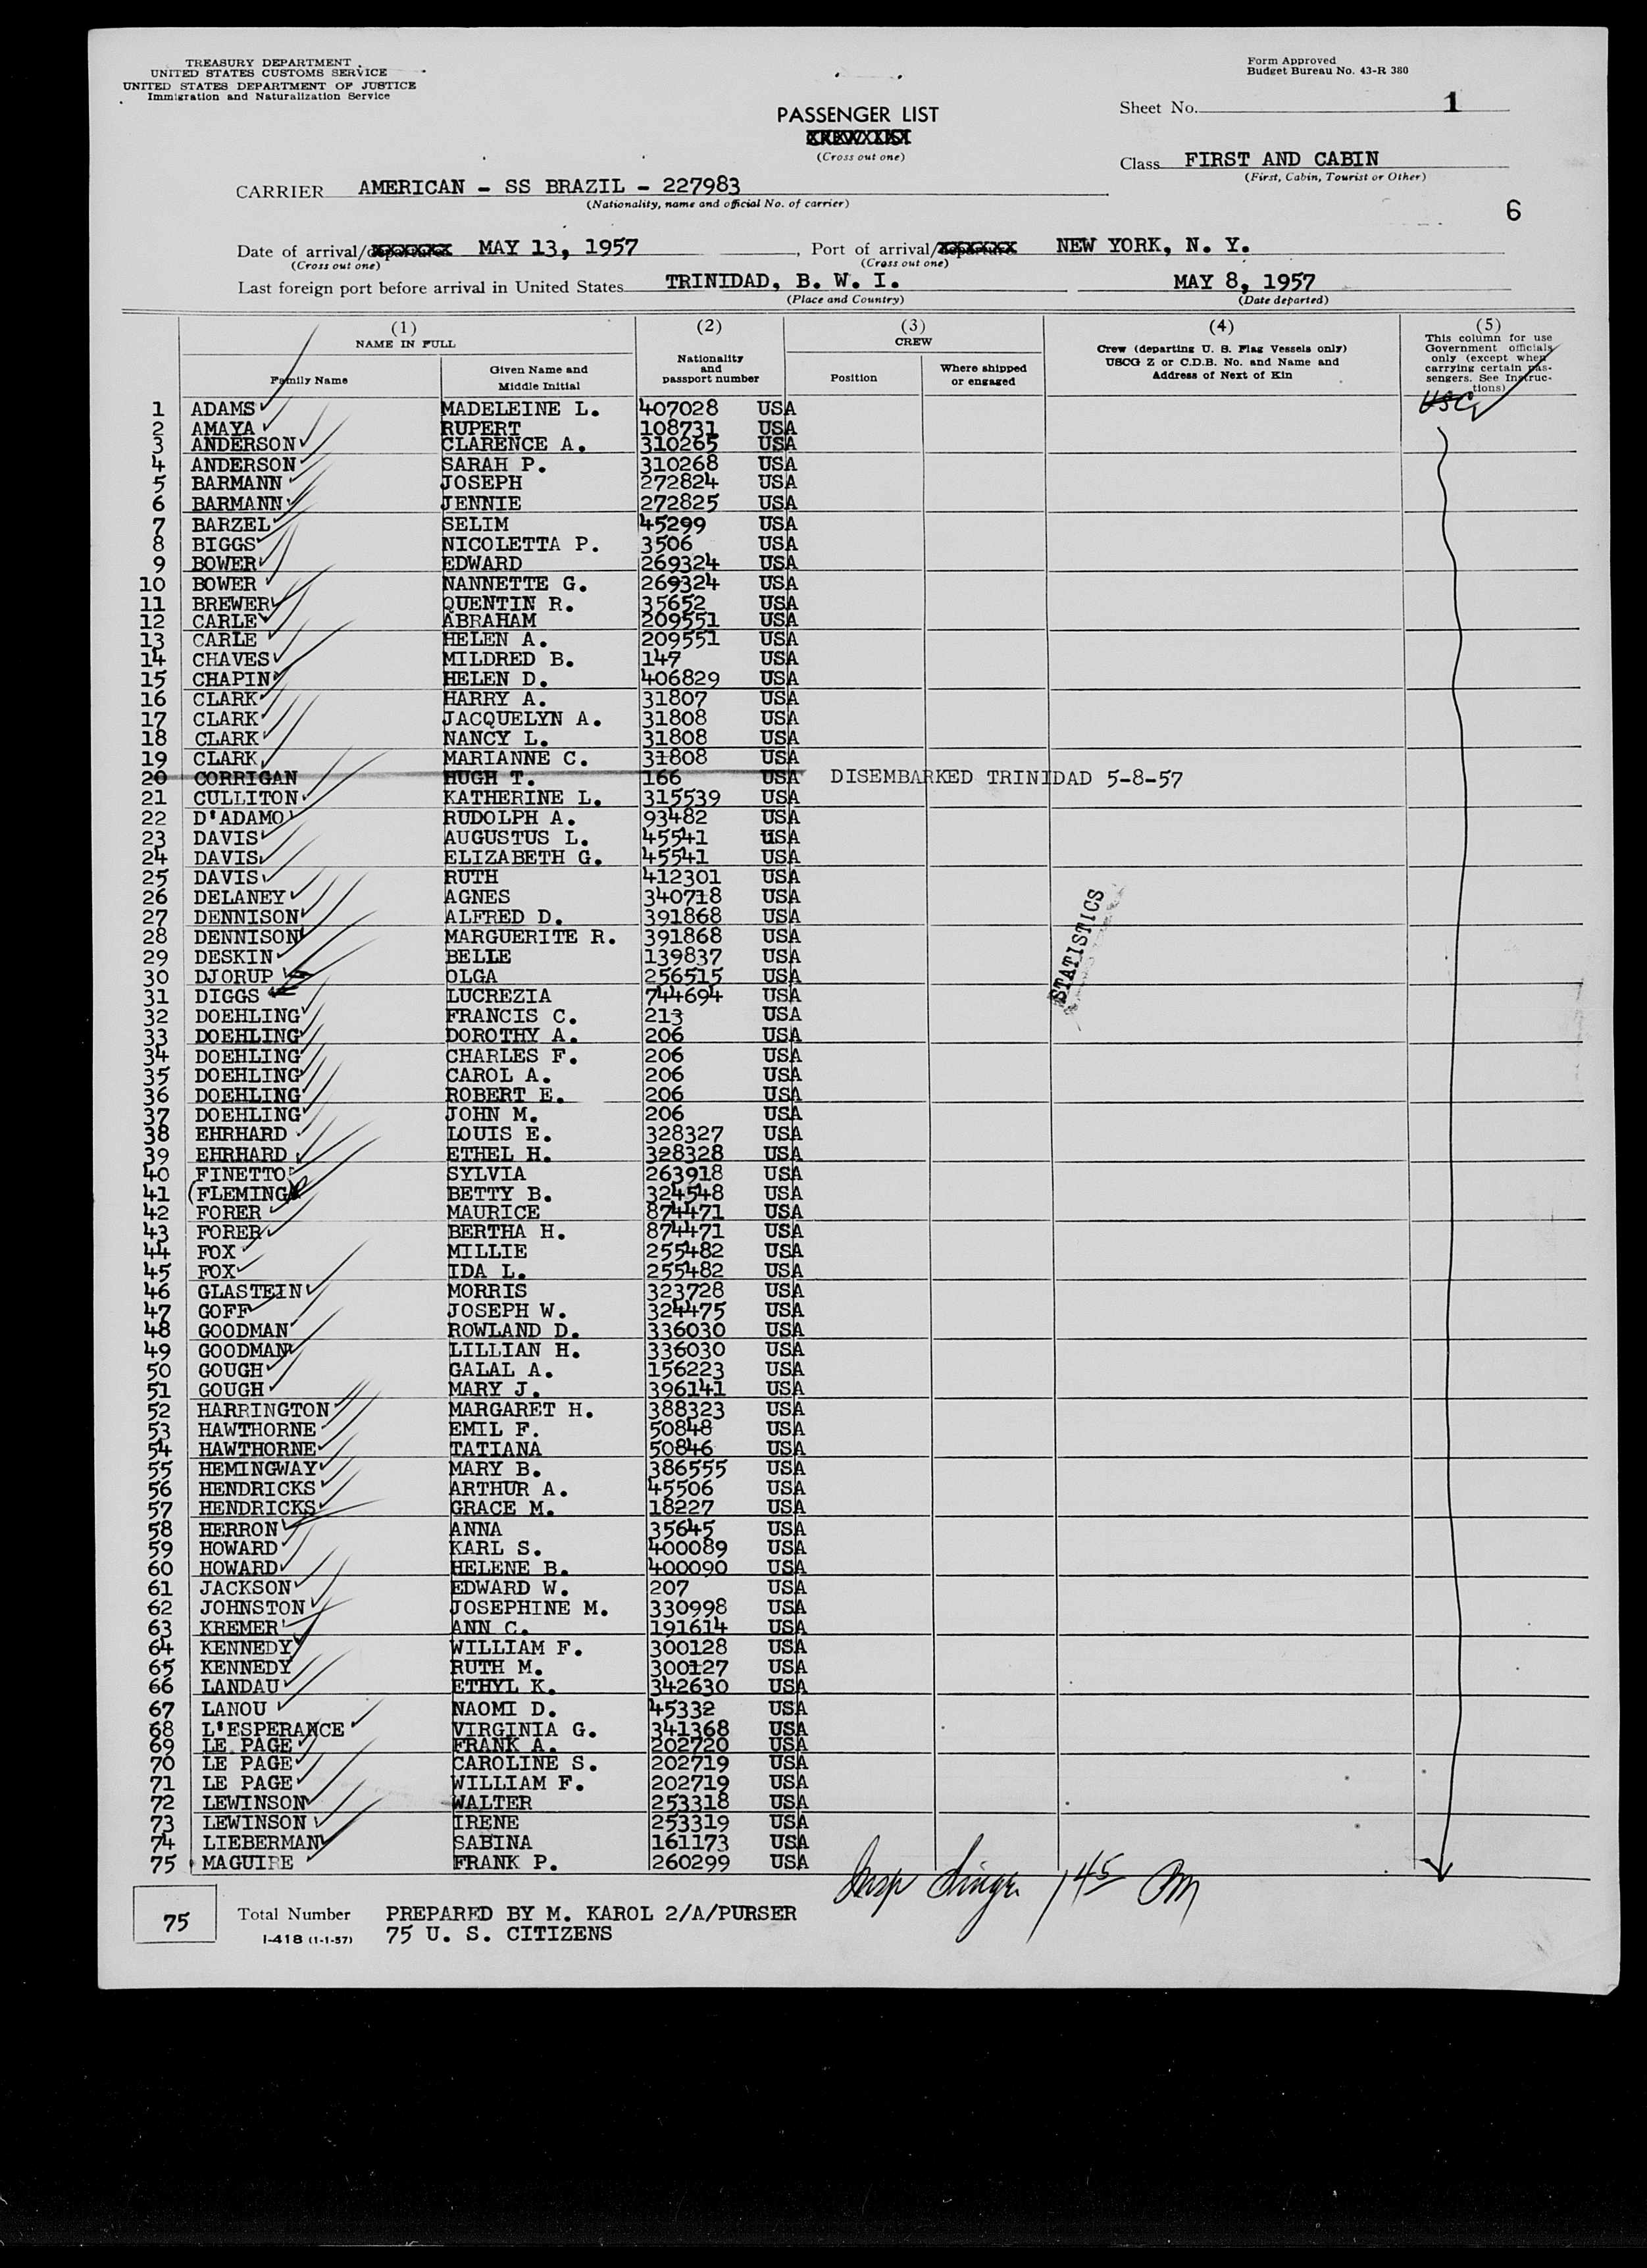 TREASURY DEPARTMENT
UNITED STATES CUSTOMS SERVICE
UNITED STATES DEPARTMENT OF JUSTICE
Immigration and Naturalization Service
Form Approved
Budget Bureau No. 43-R 380
PASSENGER LIST
(Cross out one)
Sheet No. 1
Class FIRST AND CABIN
(First, Cabin, Tourist or Other)
CARRIER AMERICAN - SS BRAZIL - 227983
(Nationality, name and official No. of carrier)
6
Date of arrival/departure MAY 13, 1957, Port of arrival/departure NEW YORK, N. Y.
(Cross out one) (Cross out one)
Last foreign port before arrival in United States TRINIDAD, B. W. I. MAY 8, 1957
(Place and Country) (Date departed)
(1) NAME IN FULL
Family Name
Given Name and Middle Initial
(2) Nationality and passport number
(3) CREW
Position
Where shipped or engaged
(4) Crew (departing U. S. Flag Vessels only) USCG Z or C.D.B. No. and Name and Address of Next of Kin
(5) This column for use Government officials only (except when carrying certain passengers. See Instructions)
USC
1 ADAMS MADELEINE L. 407028 USA
2 AMAYA RUPERT 108731 USA
3 ANDERSON CLARENCE A. 310265 USA
4 ANDERSON SARAH P. 310268 USA
5 BARMANN JOSEPH 272824 USA
6 BARMANN JENNIE 272825 USA
7 BARZEL SELIM 45299 USA
8 BIGGS NICOLETTA P. 3506 USA
9 BOWER EDWARD 269324 USA
10 BOWER NANNETTE G. 269324 USA
11 BREWER QUENTIN R. 35652 USA
12 CARLE ABRAHAM 209551 USA
13 CARLE HELEN A. 209551 USA
14 CHAVES MILDRED B. 147 USA
15 CHAPIN HELEN D. 406829 USA
16 CLARK HARRY A. 31807 USA
17 CLARK JACQUELYN A. 31808 USA
18 CLARK NANCY L. 31808 USA
19 CLARK MARIANNE C. 31808 USA
20 CORRIGAN HUGH T. 166 USA DISEMBARKED TRINIDAD 5-8-57
21 CULLITON KATHERINE L. 315539 USA
22 D'ADAMO RUDOLPH A. 93482 USA
23 DAVIS AUGUSTUS L. 45541 USA
24 DAVIS ELIZABETH G. 45541 USA
25 DAVIS RUTH 412301 USA
26 DELANEY AGNES 340718 USA
27 DENNISON ALFRED D. 391868 USA
28 DENNISON MARGUERITE R. 391868 USA
29 DESKIN BELLE 139837 USA
30 DJORUP OLGA 256515 USA
31 DIGGS LUCREZIA 744694 USA
STATISTICS
32 DOEHLING FRANCIS C. 213 USA
33 DOEHLING DOROTHY A. 206 USA
34 DOEHLING CHARLES F. 206 USA
35 DOEHLING CAROL A. 206 USA
36 DOEHLING ROBERT E. 206 USA
37 DOEHLING JOHN M. 206 USA
38 EHRHARD LOUIS E. 328327 USA
39 EHRHARD ETHEL H. 328328 USA
40 FINETTO SYLVIA 263918 USA
41 (FLEMING) BETTY B. 324548 USA
42 FORER MAURICE 874471 USA
43 FORER BERTHA H. 874471 USA
44 FOX MILLIE 255482 USA
45 FOX IDA L. 255482 USA
46 GLASTEIN MORRIS 323728 USA
47 GOFF JOSEPH W. 324475 USA
48 GOODMAN ROWLAND D. 336030 USA
49 GOODMAN LILLIAN H. 336030 USA
50 GOUGH GALAL A. 156223 USA
51 GOUGH MARY J. 396141 USA
52 HARRINGTON MARGARET H. 388323 USA
53 HAWTHORNE EMIL F. 50848 USA
54 HAWTHORNE TATIANA 50846 USA
55 HEMINGWAY MARY B. 386555 USA
56 HENDRICKS ARTHUR A. 45506 USA
57 HENDRICKS GRACE M. 18227 USA
58 HERRON ANNA 35645 USA
59 HOWARD KARL S. 400089 USA
60 HOWARD HELENE B. 400090 USA
61 JACKSON EDWARD W. 207 USA
62 JOHNSTON JOSEPHINE M. 330998 USA
63 KREMER ANN C. 191614 USA
64 KENNEDY WILLIAM F. 300128 USA
65 KENNEDY RUTH M. 300127 USA
66 LANDAU ETHYL K. 342630 USA
67 LANOU NAOMI D. 45332 USA
68 L'ESPERANCE VIRGINIA G. 341368 USA
69 LE PAGE FRANK A. 202720 USA
70 LE PAGE CAROLINE S. 202719 USA
71 LE PAGE WILLIAM F. 202719 USA
72 LEWINSON WALTER 253318 USA
73 LEWINSON IRENE 253319 USA
74 LIEBERMAN SABINA 161173 USA
75 MAGUIRE FRANK P. 260299 USA
75 Total Number PREPARED BY M. KAROL 2/A/PURSER
I-418 (1-1-57) 75 U. S. CITIZENS
Insp 145